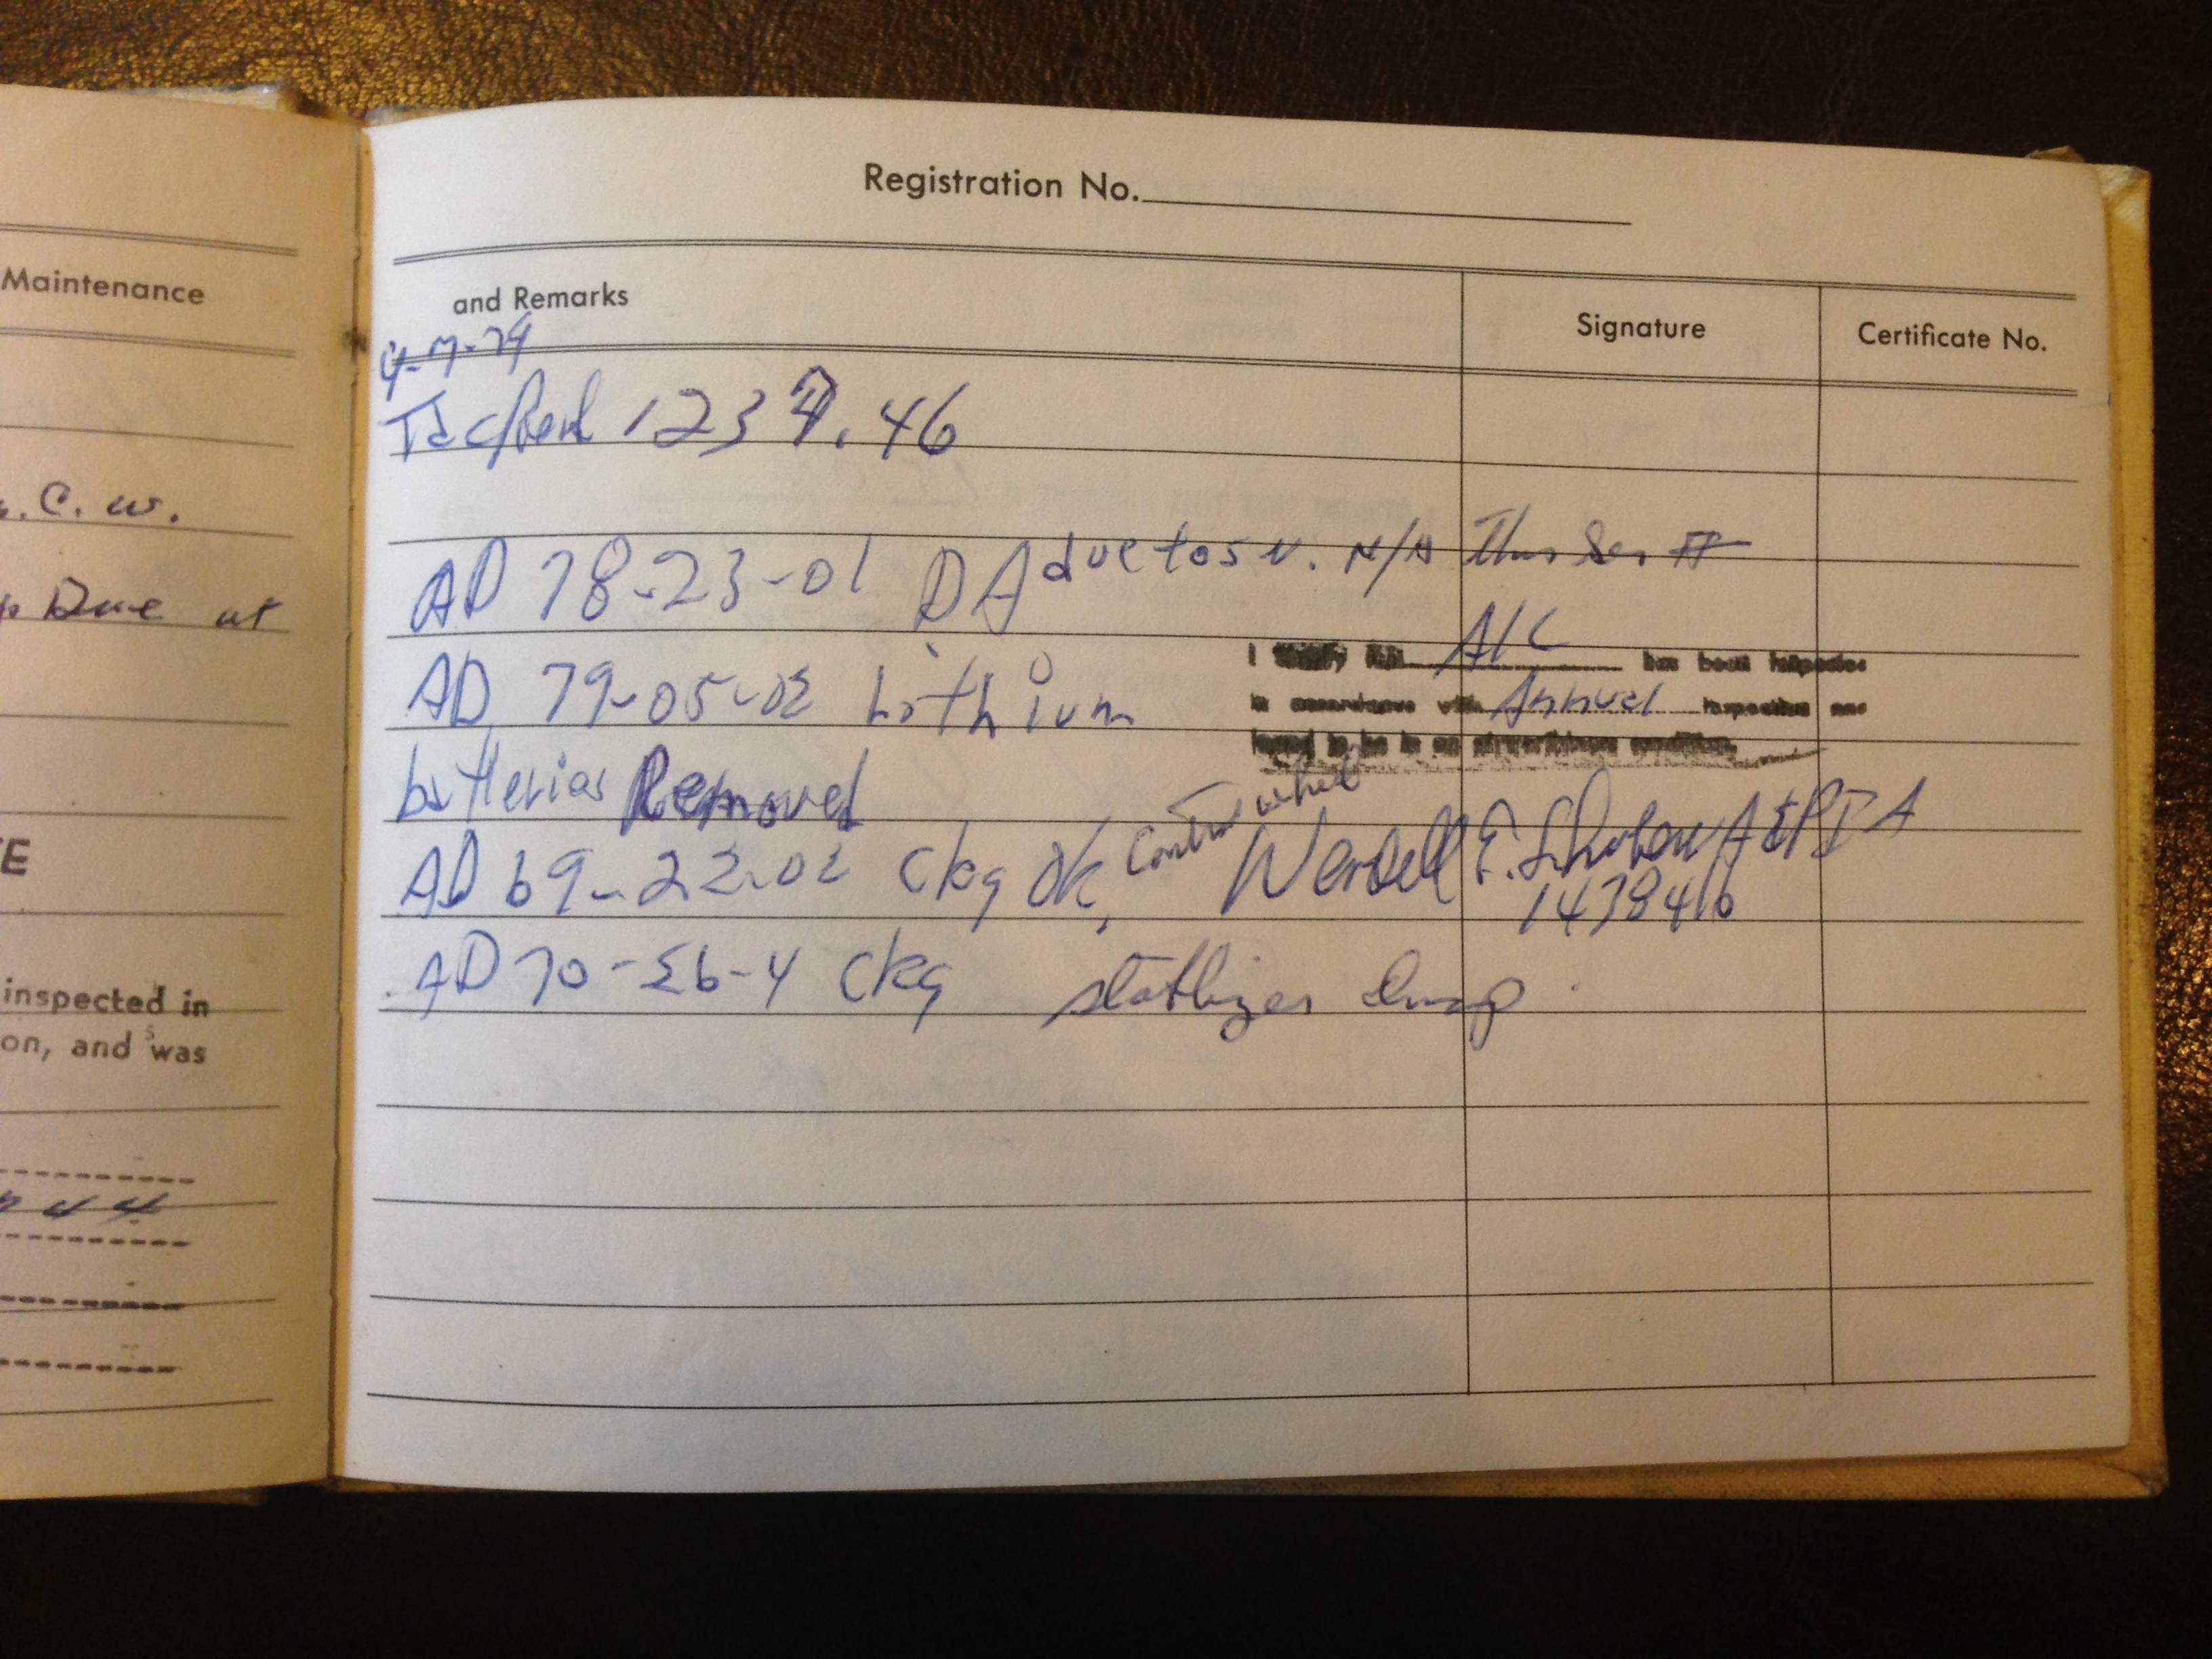 Maintenance
. C. w.
Due at
E
inspected in
on, and was
44
Registration No.
and Remarks
Signature
Certificate No.
4-7-79
Tac/Read 1237.46
AD 78-23-01 DA due to s N. N/A This Ser #
I certify this A/C has been inspected
in accordance with Annuel inspection and
found to be in an airworthiness condition.
AD 79-05-02 Lithium
batteries Removed
AD 69-22-02 ckg ok, Control wheel
Wendell E. A&P IA
1438416
AD 70-26-4 ckg stablizer Insp.